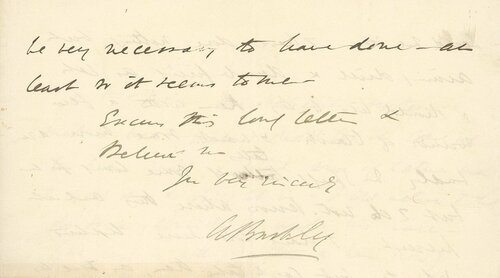 be very necessary to have done – at
least so it seems to me –
Excuse this long letter &
Believe me
Yrs very sincerely
A B Buckley